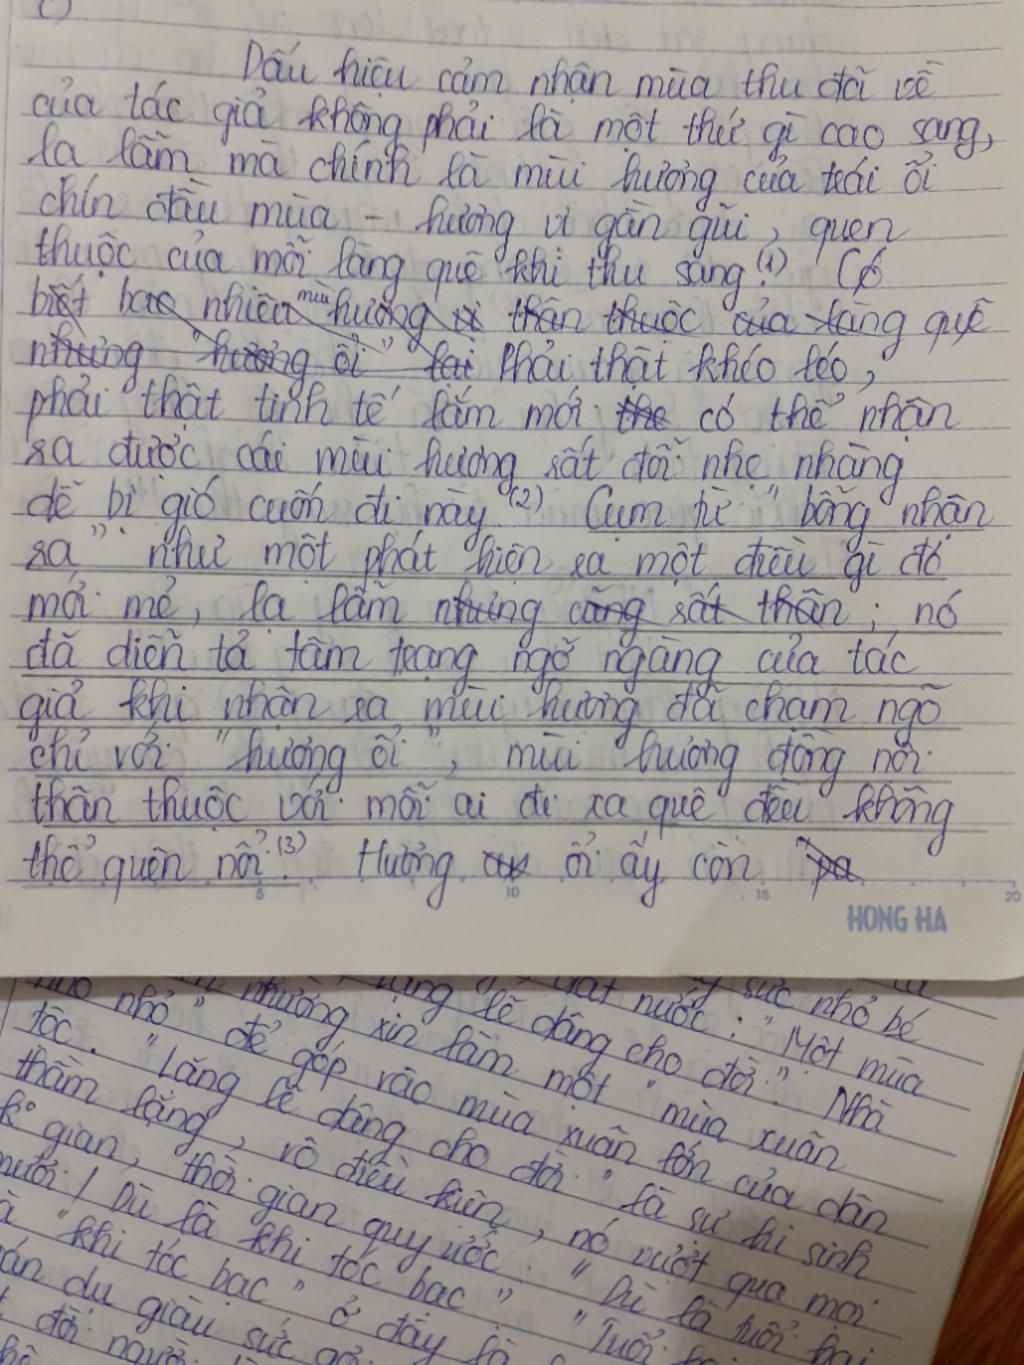 Dấu hiệu cảm nhận mùa thu đã về
của tác giả không phải là một thứ gì cao sang,
lạ lẫm mà chính là mùi hương của trái ổi
chín đầu mùa - hương vị gần gũi, quen
thuộc của mỗi làng quê khi thu sang.(1) Có
biết bao nhiêu mùi hương vị thân thuộc của làng quê
nhưng "hương ổi" lại Phải thật khéo léo,
phải thật tinh tế lắm mới the có thể nhận
ra được cái mùi hương rất đỗi nhẹ nhàng
dễ bị gió cuốn đi này.(2) Cụm từ "bỗng nhận
ra" như một phát hiện ra một điều gì đó
mới mẻ, lạ lẫm nhưng cũng rất thân; nó
đã diễn tả tâm trạng ngỡ ngàng của tác
giả khi nhận ra mùi hương đã chạm ngõ
chỉ với "hương ổi", mùi hương đồng nội
thân thuộc với mỗi ai đi xa quê đều không
thể quên nổi.(3) Hương ổi ấy còn
5 10 15 20
HONG HA
sức nhỏ bé
lặng lẽ dâng cho đời." Nhà
đất nước: "Một mùa
nho nhỏ" nhường xin làm một "mùa xuân
tộc. "để góp vào mùa xuân lớn của dân
"Lặng lẽ dâng cho đời" là sự hi sinh
thầm lặng, vô điều kiện, nó vượt qua mọi
gian, thời gian quy ước. "Dù là tuổi hai
mươi / Dù là khi tóc bạc" "Tuổi
"khi tóc bạc" ở đây là
dụ giàu sức
đời người